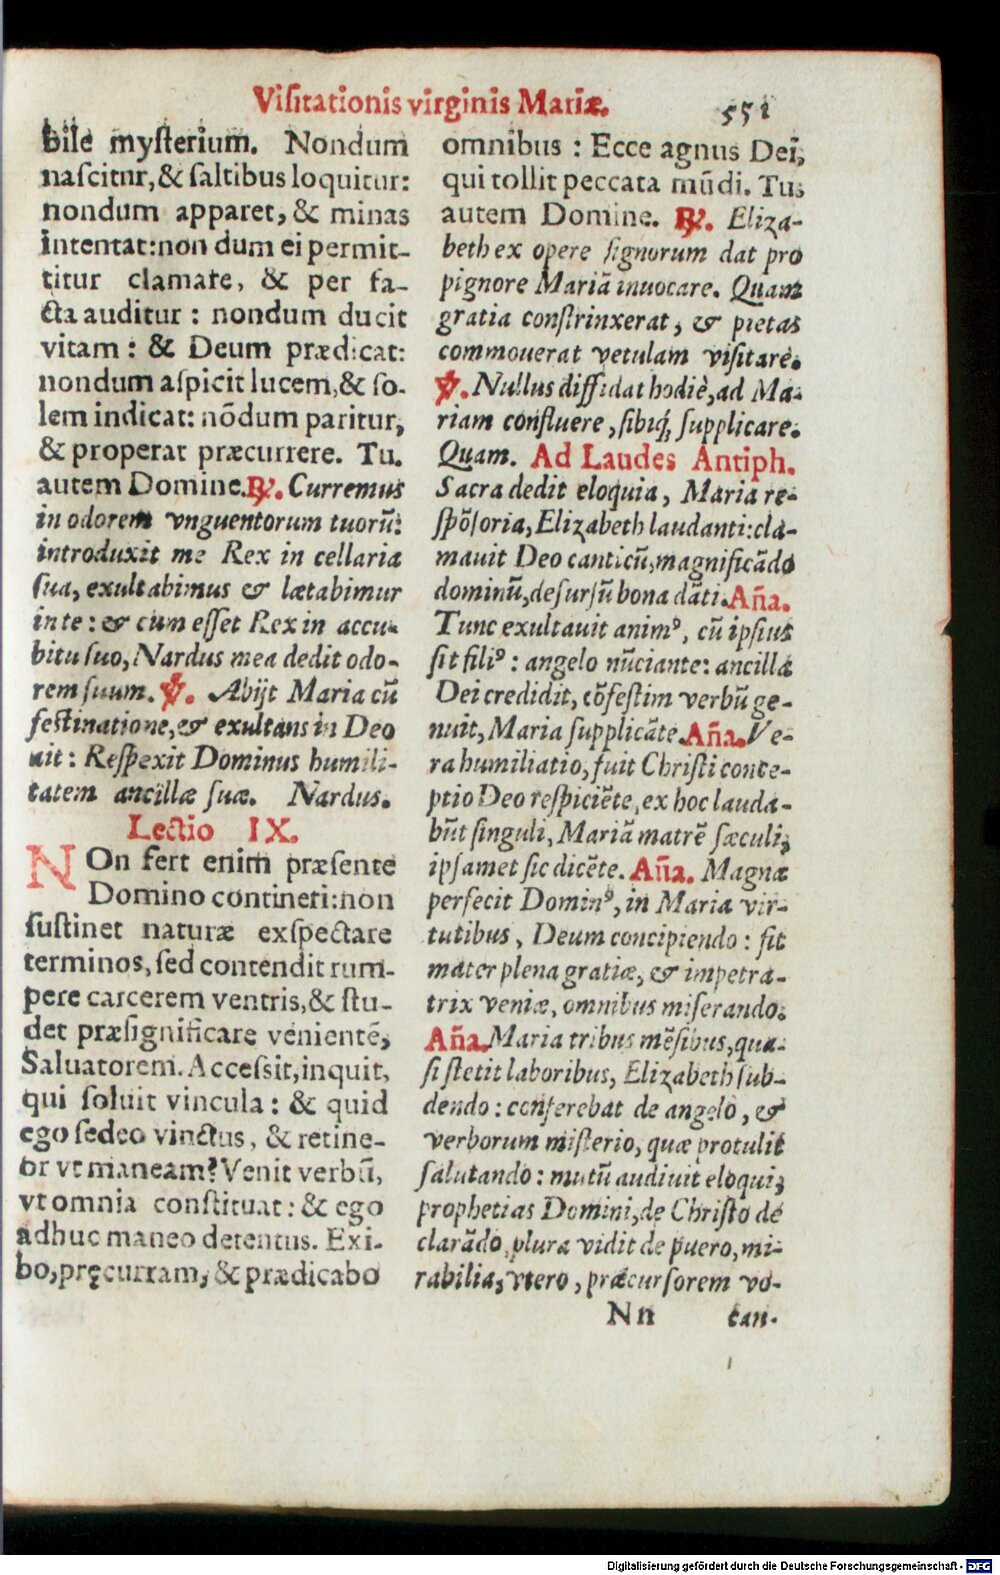 Viſitationis virginis Mariæ. 551
bile myſterium. Nondum
naſcitur, & ſaltibus loquitur:
nondum apparet, & minas
intentat: non dum ei permit-
titur clamare, & per fa-
cta auditur : nondum ducit
vitam : & Deum prædicat:
nondum aſpicit lucem, & ſo-
lem indicat: nõdum paritur,
& properat præcurrere. Tu.
autem Domine. ℟. Curremus
in odorem vnguentorum tuorũ:
introduxit me Rex in cellaria
ſua, exultabimus & lætabimur
in te : & cum eſſet Rex in accu-
bitu ſuo, Nardus mea dedit odo-
rem ſuum. ℣. Abijt Maria cũ
feſtinatione, & exultans in Deo
ait : Reſpexit Dominus humili-
tatem ancillæ ſuæ. Nardus.
Lectio IX.
NOn fert enim præſente
Domino contineri: non
ſuſtinet naturæ exſpectare
terminos, ſed contendit rum-
pere carcerem ventris, & ſtu-
det præſignificare venientẽ,
Saluatorem. Acceſſit, inquit,
qui ſoluit vincula : & quid
ego ſedeo vinctus, & retine-
or vt maneam? Venit verbũ,
vt omnia conſtituat : & ego
adhuc maneo detentus. Exi-
bo, pręcurram, & prædicabo
omnibus : Ecce agnus Dei,
qui tollit peccata mũdi. Tu.
autem Domine. ℟. Eliza-
beth ex opere ſignorum dat pro
pignore Mariã inuocare. Quam
gratia conſtrinxerat, & pietas
commouerat vetulam viſitare.
℣. Nullus diffidat hodiè, ad Ma-
riam confluere, ſibiq́; ſupplicare.
Quam. Ad Laudes Antiph.
Sacra dedit eloquia, Maria re-
ſpõſoria, Elizabeth laudanti: cla-
mauit Deo canticũ, magnificãdo
dominũ, de ſurſũ bona dãti. Aña.
Tunc exultauit animꝰ, cũ ipſius
ſit filiꝰ : angelo nũciante: ancilla
Dei credidit, cõfeſtim verbũ ge-
nuit, Maria ſupplicãte. Aña. Ve-
ra humiliatio, fuit Chriſti conce-
ptio Deo reſpiciẽte, ex hoc lauda-
bũt ſinguli, Mariã matrẽ ſæculi,
ipſamet ſic dicẽte. Aña. Magna
perfecit Dominꝰ, in Maria vir-
tutibus, Deum concipiendo : fit
mater plena gratiæ, & impetra-
trix veniæ, omnibus miſerando.
Aña. Maria tribus mẽſibus, qua-
ſi ſtetit laboribus, Elizabeth ſub-
dendo : conferebat de angelo, &
verborum miſterio, quæ protulit
ſalutando : mutũ audiuit eloqui,
prophetias Domini, de Chriſto de
clarãdo, plura vidit de puero, mi-
rabilia, vtero, præcurſorem vo-
Nn can-
Digitalisierung gefördert durch die Deutsche Forschungsgemeinschaft - DFG